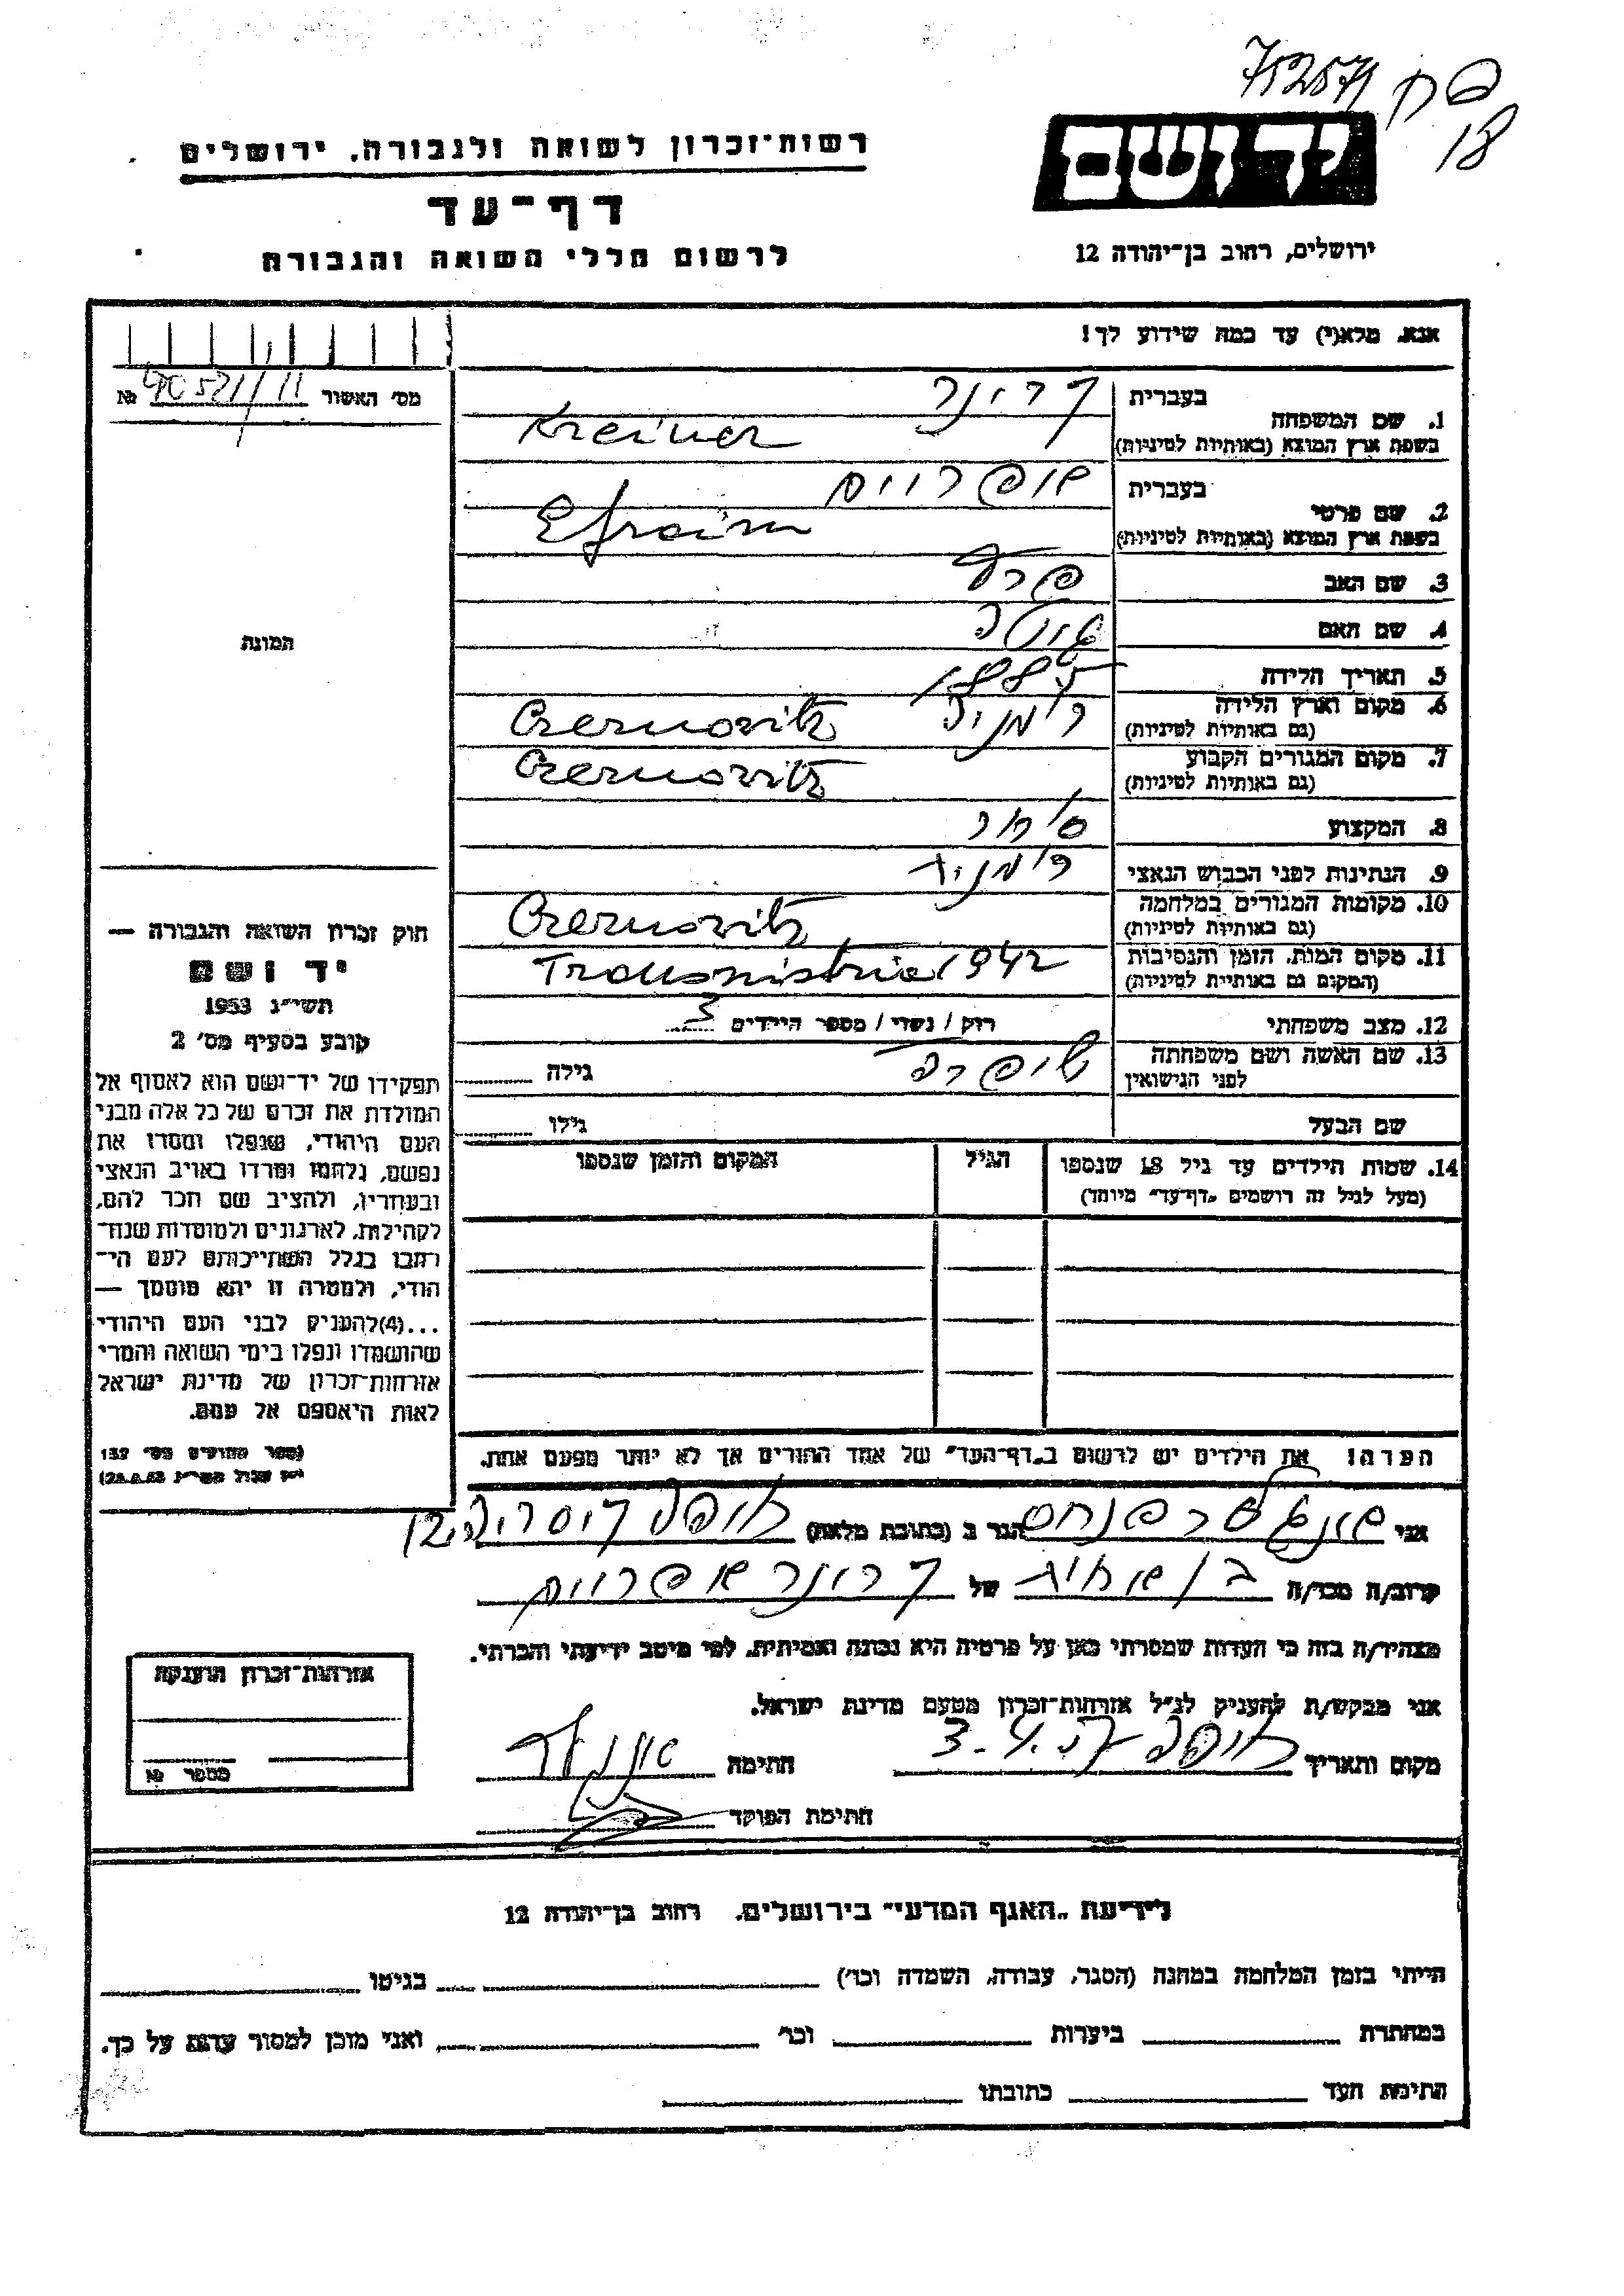 752571 פק
18
יד ושם
ירושלים, רחוב בן־יהודה 12
רשות־זכרון לשואה ולגבורה, ירושלים
דף־עד
לרשום חללי השואה והגבורה
אנא, מלא(י) עד כמה שידוע לך!
מס׳ האשור № 40521/11
1. שם המשפחה
בעברית קרינר
בשפת ארץ המוצא (באותיות לטיניות) Kreiner
2. שם פרטי
בעברית אפרוים
בשפת ארץ המוצא (באותיות לטיניות) Efraim
3. שם האב
4. שם האם
5. תאריך הלידה 1885
6. מקום וארץ הלידה רומניה Czernovitz
(גם באותיות לטיניות)
7. מקום המגורים הקבוע Czernovitz
(גם באותיות לטיניות)
8. המקצוע סוחר
9. הנתינות לפני הכבוש הנאצי רומנית
10. מקומות המגורים במלחמה Czernovitz
(גם באותיות לטיניות)
11. מקום המות, הזמן והנסיבות Transnistria 1942
(המקום גם באותיות לטיניות)
12. מצב משפחתי רוק / נשוי / מספר הילדים 3
13. שם האשה ושם משפחתה שיפרה גילה
לפני הנישואין
שם הבעל גילו
14. שמות הילדים עד גיל 18 שנספו הגיל המקום והזמן שנספו
(מעל לגיל זה רושמים „דף־עד״ מיוחד)
הערה! את הילדים יש לרשום ב„דף־העד״ של אחד ההורים אך לא יותר מפעם אחת.
התמונה
חוק זכרון השואה והגבורה —
יד ושם
תשי״ג 1953
קובע בסעיף מס׳ 2
תפקידו של יד־ושם הוא לאסוף אל
המולדת את זכרם של כל אלה מבני
העם היהודי, שנפלו ומסרו את
נפשם, נלחמו ומרדו באויב הנאצי
ובעוזריו, ולהציב שם וזכר להם,
לקהילות, לארגונים ולמוסדות שנח־
רבו בגלל השתייכותם לעם הי־
הודי, ולמטרה זו יהא מוסמך —
...(4)להעניק לבני העם היהודי
שהושמדו ונפלו בימי השואה והמרי
אזרחות־זכרון של מדינת ישראל
לאות היאספם אל עמם.
(ספר החוקים מס׳ 132
אני פנחס הגר ב (כתובת מלאה) חיפה
קרוב/ה מכר/ה בן אחות של קרינר אפרוים
מצהיר/ה בזה כי העדות שמסרתי כאן על פרטיה היא נכונה ואמיתית, לפי מיטב ידיעתי והכרתי.
אני מבקש/ת להעניק לנ״ל אזרחות־זכרון מטעם מדינת ישראל.
מקום ותאריך חיפה 3.4. חתימה
חתימת הפוקד
אזרחות־זכרון הוענקה
מספר №
לידיעת „האגף המדעי״ בירושלים, רחוב בן־יהודה 12
הייתי בזמן המלחמה במחנה (הסגר, עבודה, השמדה וכו׳) בגיטו
במחתרת ביערות וכו׳ ואני מוכן למסור עדות על כך.
חתימת העד כתובתו